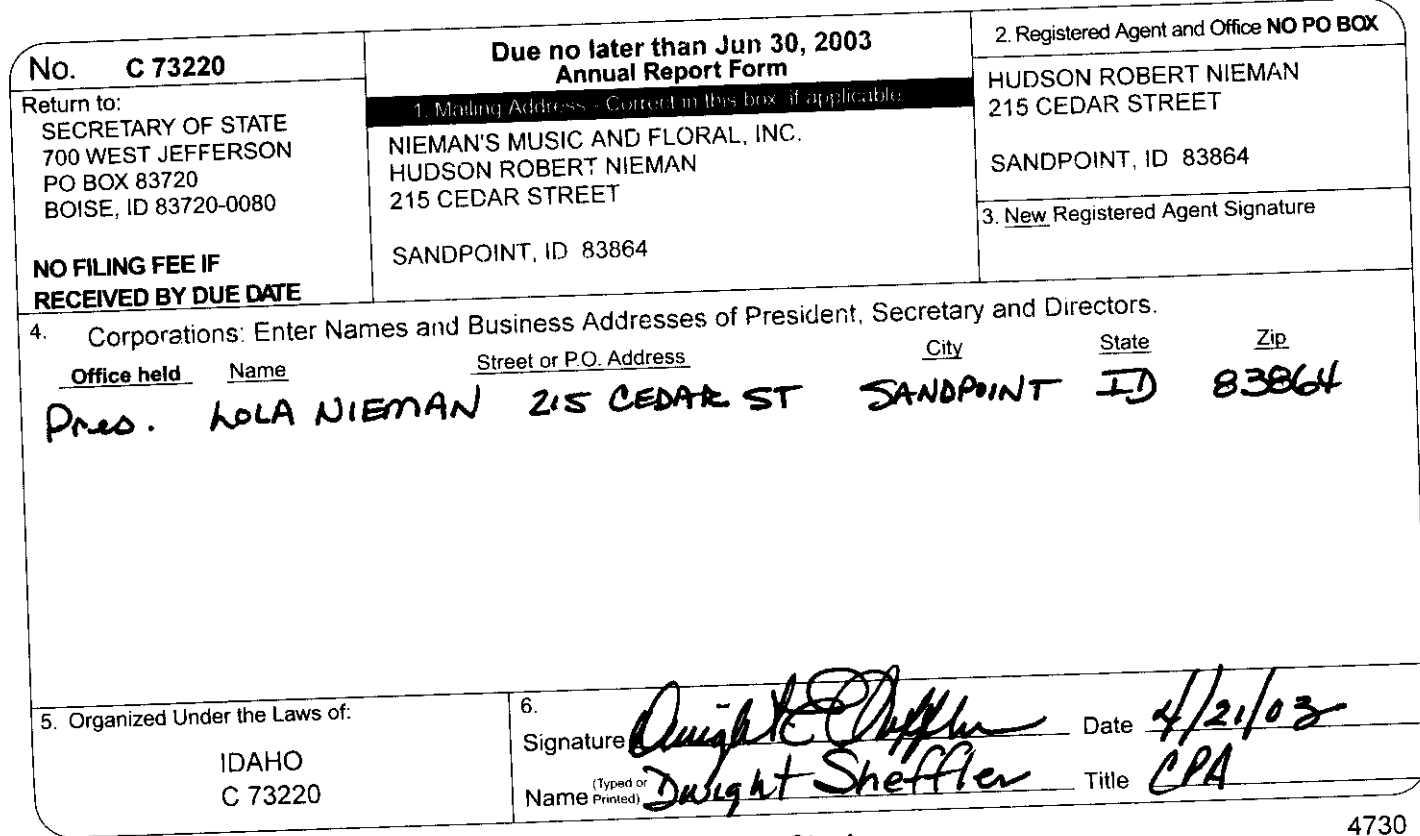 No. C 73220
Return to:
SECRETARY OF STATE
700 WEST JEFFERSON
PO BOX 83720
BOISE, ID 83720-0080
NO FILING FEE IF
RECEIVED BY DUE DATE
Due no later than Jun 30, 2003
Annual Report Form
1. Mailing Address - Correct in this box if applicable
NIEMAN'S MUSIC AND FLORAL, INC.
HUDSON ROBERT NIEMAN
215 CEDAR STREET
SANDPOINT, ID 83864
2. Registered Agent and Office NO PO BOX
HUDSON ROBERT NIEMAN
215 CEDAR STREET
SANDPOINT, ID 83864
3. New Registered Agent Signature
4. Corporations: Enter Names and Business Addresses of President, Secretary and Directors.
Office held Name Street or P.O. Address City State Zip
Pres. LOLA NIEMAN 215 CEDAR ST SANDPOINT ID 83864
5. Organized Under the Laws of:
IDAHO
C 73220
6.
Signature Dwight E Sheffler Date 4/21/03
Name (Typed or Printed) Dwight Sheffler Title CPA
4730